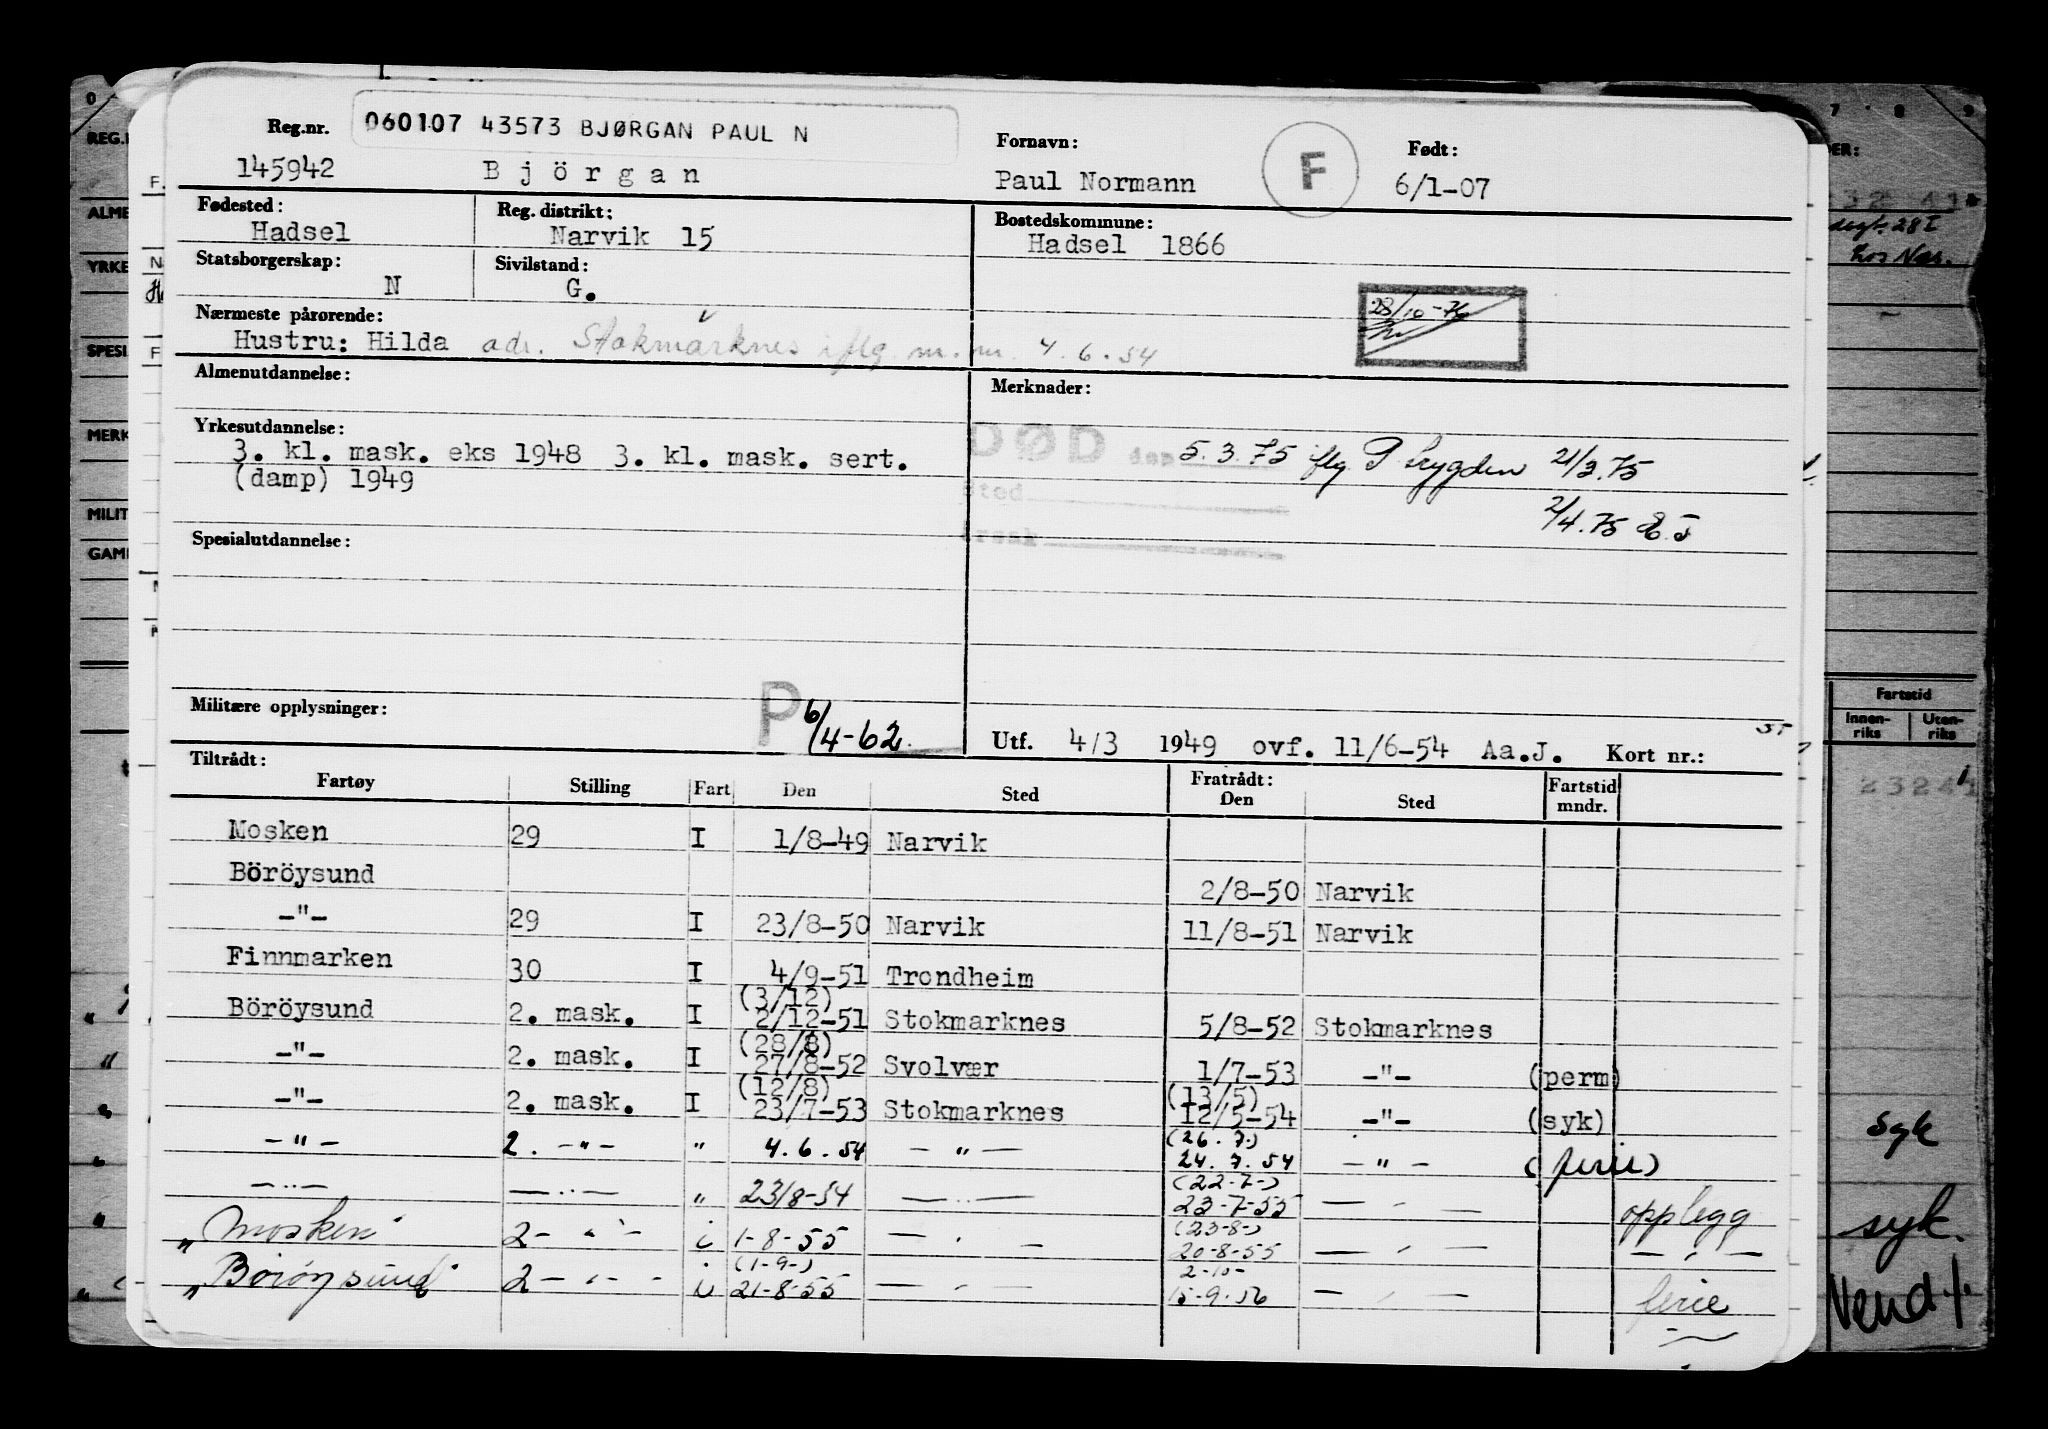 Reg.nr. 060107 43573 BJØRGAN PAUL N Fornavn: F Født:
145942 Björgan Paul Normann 6/1-07
Fødested: Reg. distrikt: Bostedskommune:
Hadsel Narvik 15 Hadsel 1866
Statsborgerskap: Sivilstand:
N G.
28/10-76
Nærmeste pårørende:
Hustru: Hilda adr. Stokmarknes iflg. m. nr. 4.6.54
Almenutdannelse: Merknader:
Yrkesutdannelse:
3. kl. mask. eks 1948 3. kl. mask. sert. DØD den 5.3.75 iflg. P. trygden 21/3.75
(damp) 1949 sted
2/4.75
årsak
Spesialutdannelse:
Militære opplysninger: P 6/4-62
Utf. 4/3 1949 ovf. 11/6-54 Aa.J. Kort nr.:
Tiltrådt: Fratrådt:
Fartøy Stilling Fart Den Sted Den Sted Fartstid mndr.
Mosken 29 I 1/8-49 Narvik
Böröysund 2/8-50 Narvik
-"- 29 I 23/8-50 Narvik 11/8-51 Narvik
Finnmarken 30 I 4/9-51 Trondheim
(3/12)
Böröysund 2. mask. I 2/12-51 Stokmarknes 5/8-52 Stokmarknes
(28/8)
-"- 2. mask. I 27/8-52 Svolvær 1/7-53 -"- (perm)
(12/8) (13/5)
-"- 2. mask. I 23/7-53 Stokmarknes 12/5-54 -"- (syk)
(26.7.)
-"- 2. -"- " 4.6.54 -"- 24.7.54 -"- (ferie)
(22-7-)
-"- -"- " 23/8-54 -"- 23-7-55 -"- opplegg
(23-8-)
"Mosken" 2-"- i 1-8-55 -"- 20-8-55 -"- -"-
(1-9-) 2-10-
"Böröysund" 2-"- i 21-8-55 -"- 15-9-56 -"- ferie
Fartstid
Innenriks Utenriks
syk
syk.
Vend